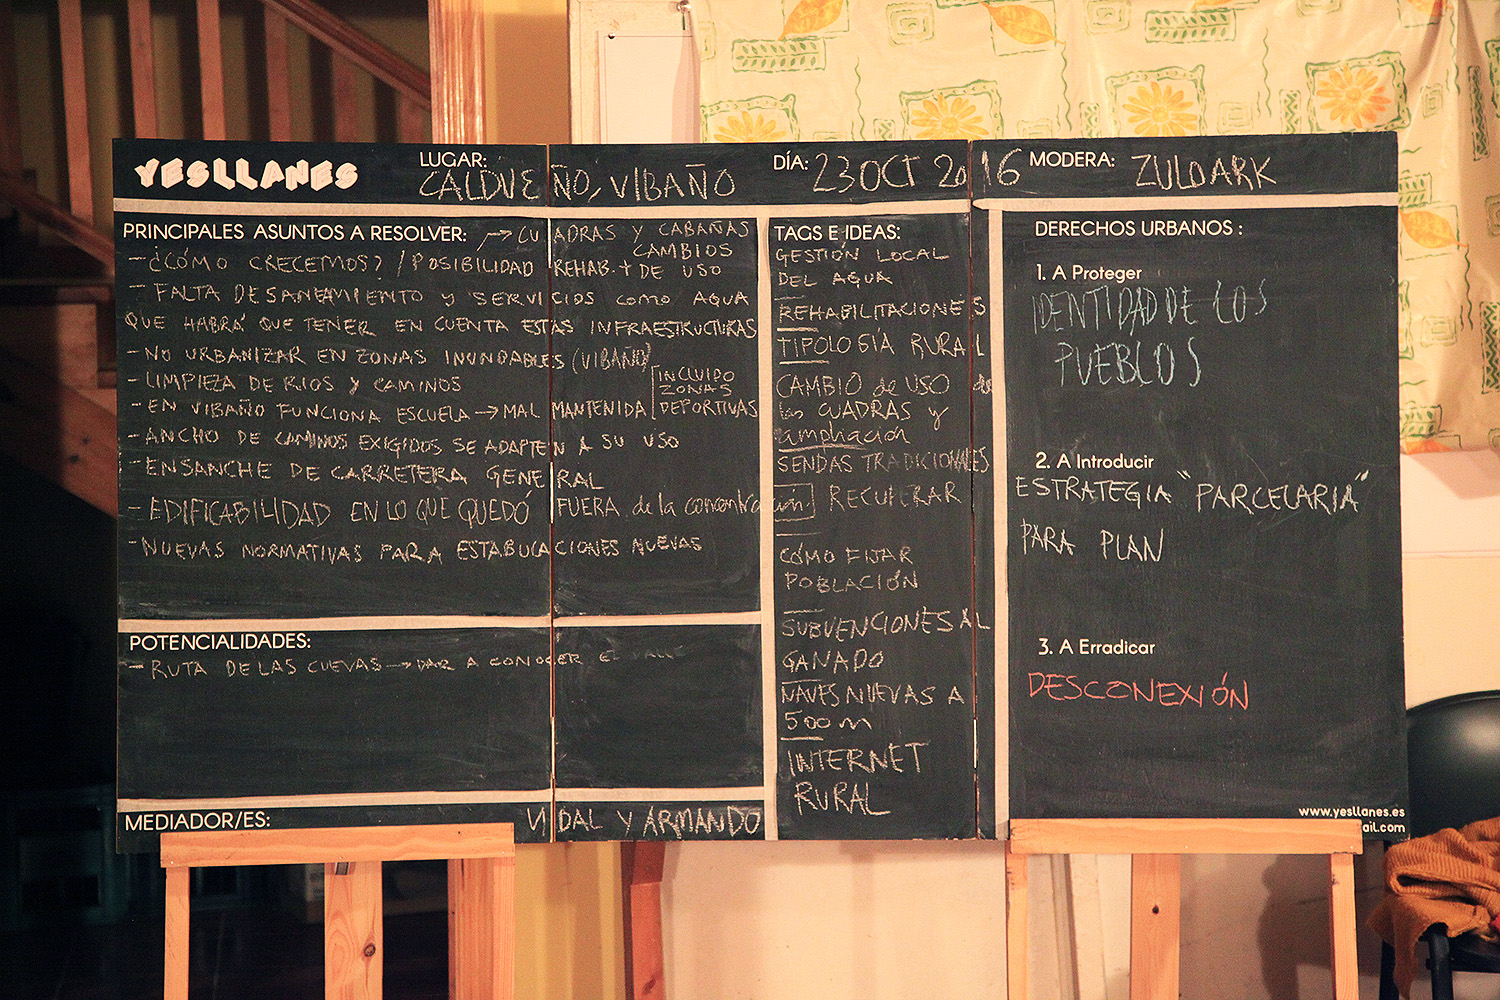 YESLLANES
LUGAR:
CALDUEÑO, VIBAÑO
DÍA: 23 OCT 2016
MODERA: ZULOARK
PRINCIPALES ASUNTOS A RESOLVER:
→ CUADRAS Y CABAÑAS
CAMBIOS
- ¿CÓMO CRECEMOS? / POSIBILIDAD REHAB. + DE USO
- FALTA DE SANEAMIENTO Y SERVICIOS COMO AGUA
QUE HABRÁ QUE TENER EN CUENTA ESTAS INFRAESTRUCTURAS
- NO URBANIZAR EN ZONAS INUNDABLES (VIBAÑO)
- LIMPIEZA DE RIOS Y CAMINOS
- EN VIBAÑO FUNCIONA ESCUELA → MAL MANTENIDA
INCLUIDO
ZONAS
DEPORTIVAS
- ANCHO DE CAMINOS EXIGIDOS SE ADAPTEN A SU USO
- ENSANCHE DE CARRETERA GENERAL
- EDIFICABILIDAD EN LO QUE QUEDÓ FUERA de la concentración.
- NUEVAS NORMATIVAS PARA ESTABULACIONES NUEVAS
POTENCIALIDADES:
- RUTA DE LAS CUEVAS → DAR A CONOCER EL VALLE
MEDIADOR/ES: VIDAL Y ARMANDO
TAGS E IDEAS:
GESTIÓN LOCAL
DEL AGUA
REHABILITACIONES
TIPOLOGÍA RURAL
CAMBIO de USO de
las CUADRAS y
ampliación
SENDAS TRADICIONALES
RECUPERAR
CÓMO FIJAR
POBLACIÓN
SUBVENCIONES AL
GANADO
NAVES NUEVAS A
500 m
INTERNET
RURAL
DERECHOS URBANOS :
1. A Proteger
IDENTIDAD DE LOS
PUEBLOS
2. A Introducir
ESTRATEGIA "PARCELARIA"
PARA PLAN
3. A Erradicar
DESCONEXIÓN
www.yesllanes.es
ail.com